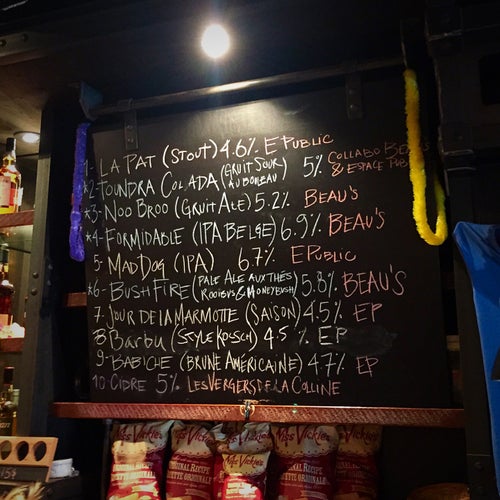 1- LA PAT (STOUT) 4.6% E PUBLIC
*2- TOUNDRA COLADA (GRUIT SOUR AU BONBAU) 5% COLLABO BEAU'S & ESPACE PUB
*3- NOO BROO (GRUIT ALE) 5.2% BEAU'S
*4- FORMIDABLE (IPA BELGE) 6.9% BEAU'S
5- MAD DOG (IPA) 6.7% E PUBLIC
*6- BUSH FIRE (PALE ALE AUX THÉS ROOIBUS & HONEYBUSH) 5.8% BEAU'S
7. JOUR DE LA MARMOTTE (SAISON) 4.5% EP
8- Barbu (STYLE KOLSCH) 4.5% EP
9- BABICHE (BRUNE AMÉRICAINE) 4.7% EP
10 CIDRE 5% LES VERGERS DE LA COLLINE
Miss Vickie's
ORIGINAL RECIPE
RECETTE ORIGINALE